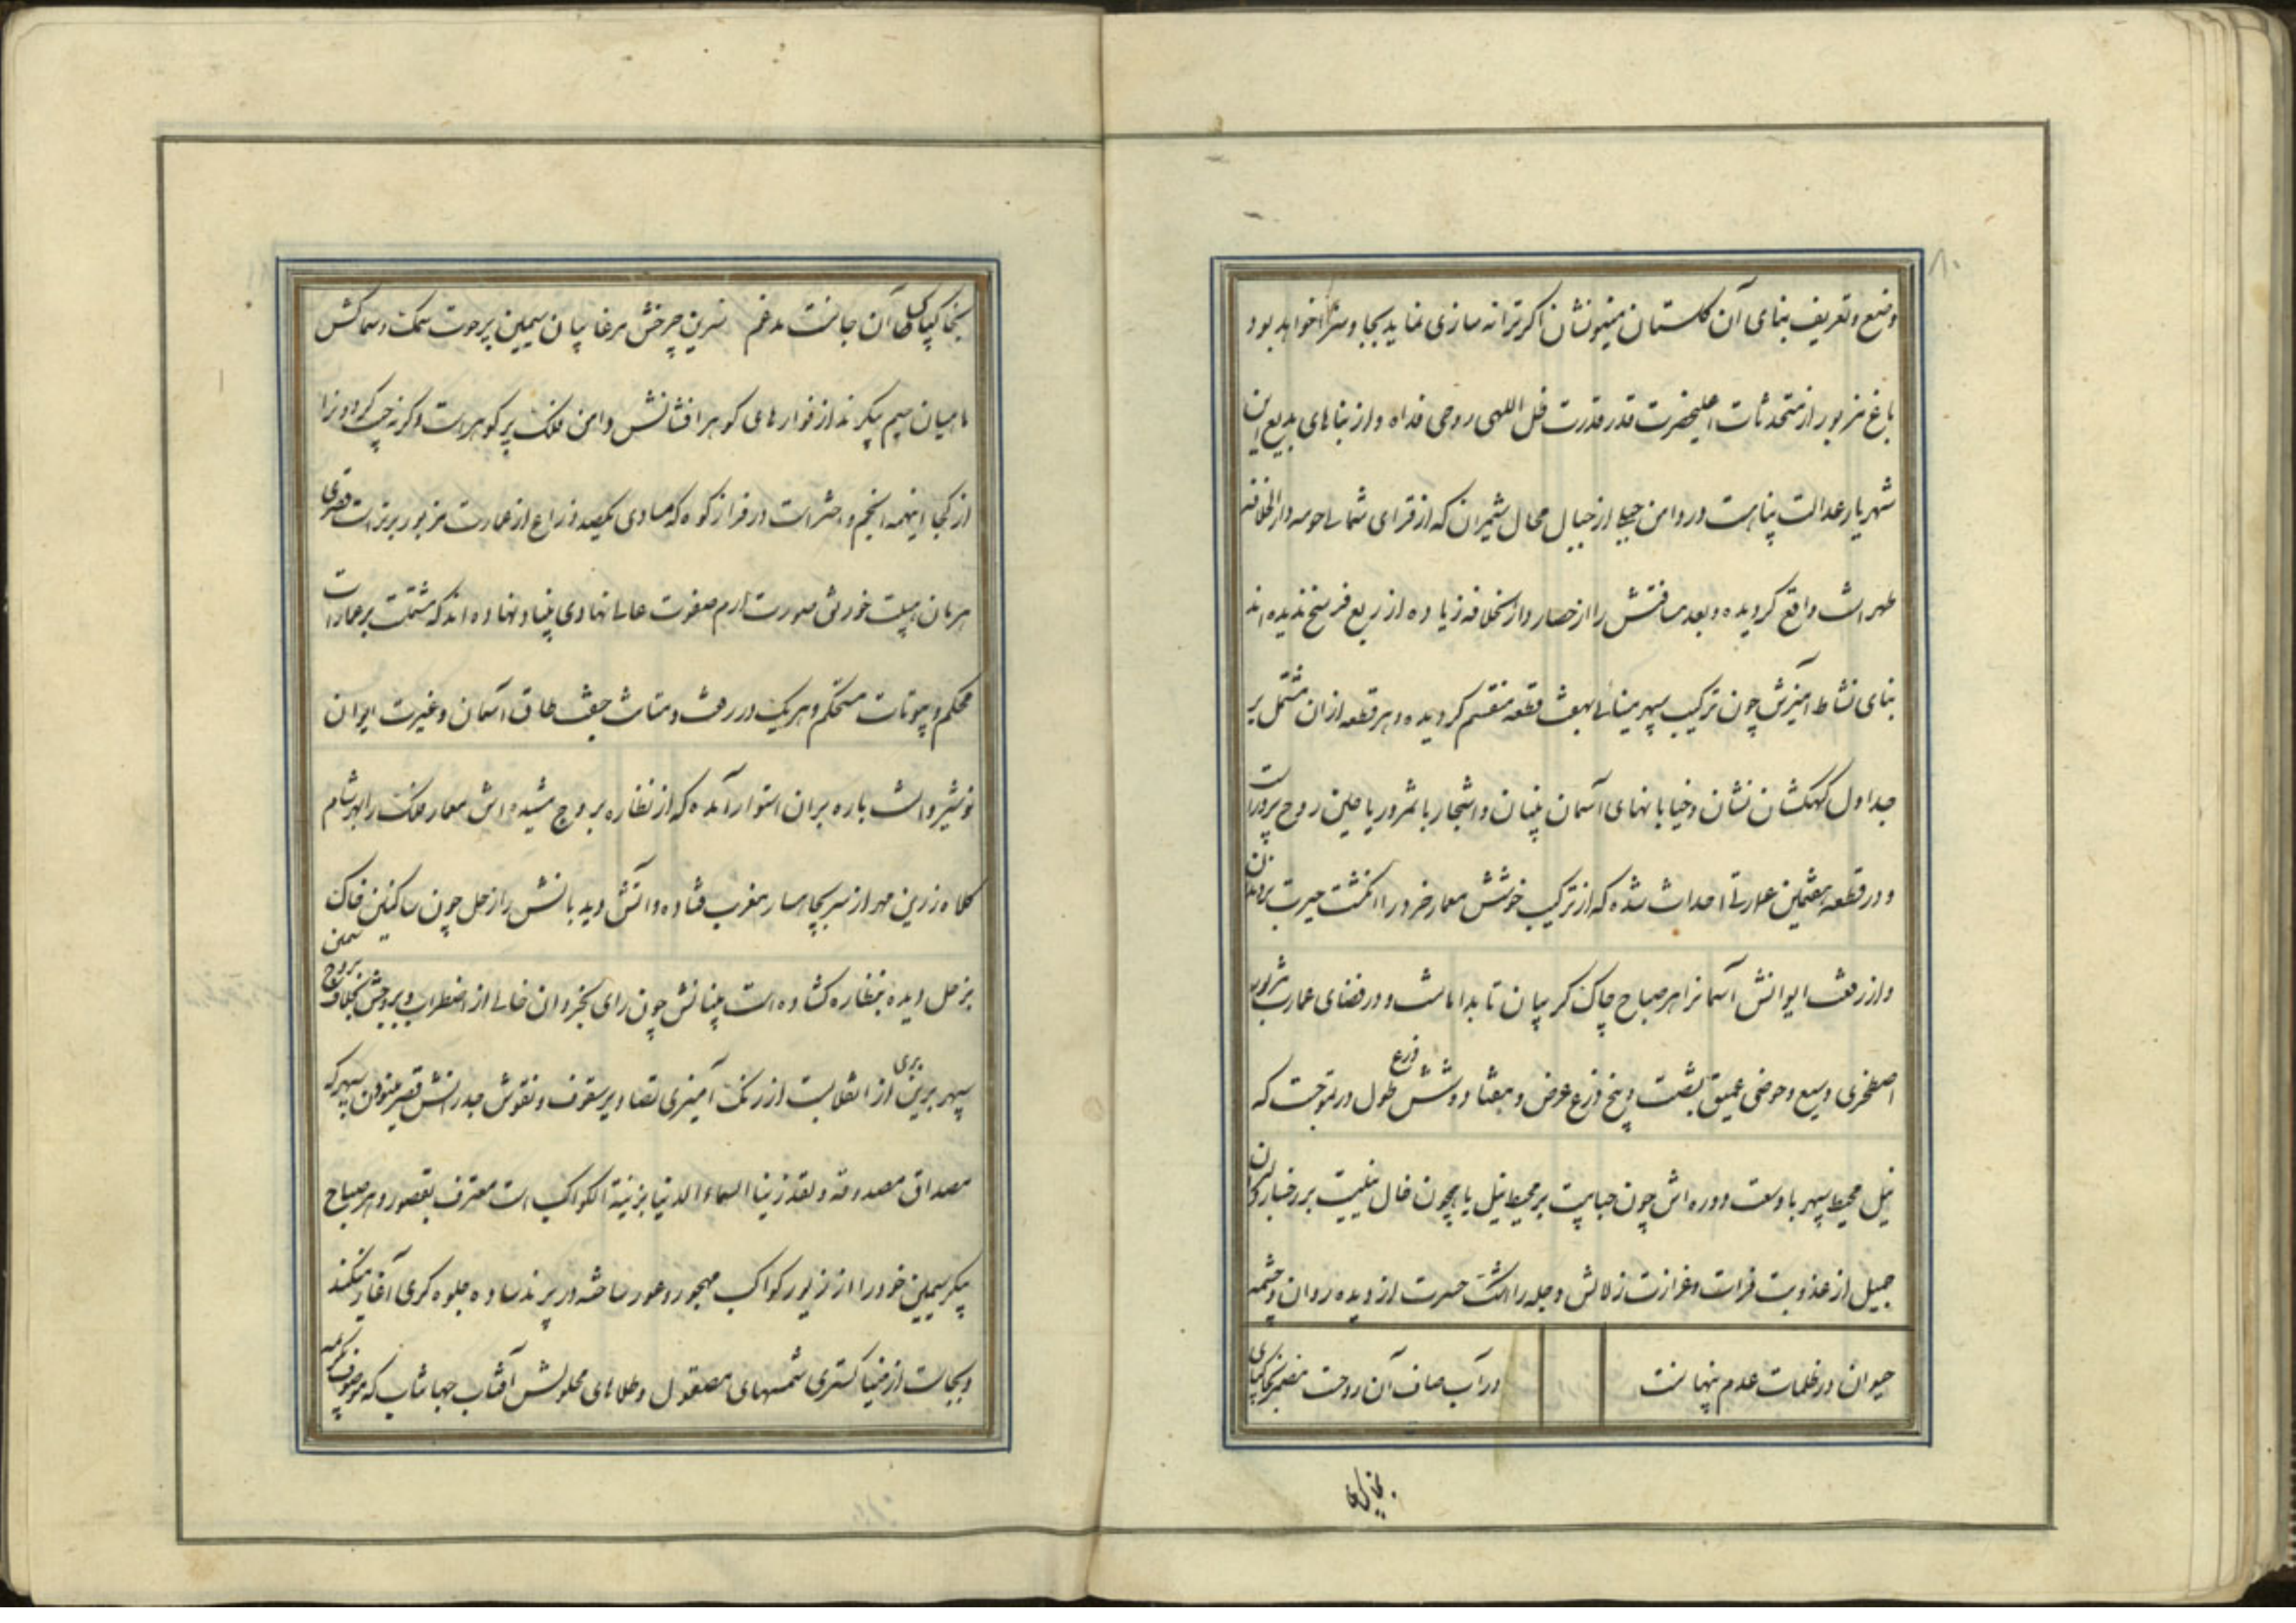 ۸۰
وضع و تعریف بنای آن گلستان مینونشان اگر ترانه سازی نماید بجا و سزا خواهد بود
باغ مزبور از مستحدثات اعلیحضرت قدر قدرت ظل اللهی روحی فداه و از بناهای بدیع این
شهریار عدالت پناهست در دامن جبلی از جبال محال شمیران که از قرای شمالی حومه دارالخلافه
طهرانست واقع گردیده و بعد مسافتش را از حصار دارالخلافه زیاده از ربع فرسخ ندیده اند
بنای نشاط آمیزش چون ترکیب سپهر مینائی بهفت قطعه منقسم گردیده و هر قطعه از ان مشتمل بر
جداول کهکشان نشان و خیابانهای آسمان بنیان و اشجار با ثمر و ریاحین روح پرور است
و در قطعه هفتمین عمارتی احداث شده که از ترکیب خوشش معمار خرد را انگشت حیرت بردندان
و از رفعت ایوانش آسمانرا هر صباح چاک گریبان تا بدامانست و در فضای عمارت مزبور
اصطخری وسیع و حوضی عمیق بشصت و پنج ذرع عرض و هفتاد و شش ذرع طول در تموجست که
نیل محیط سپهر با وسعت دوره اش چون حبابیست بر محیط نیل یا همچون خال نیلیست بر رخسار
جمیل از عذوبت فرات و غزارت زلالش دجله را اشک حسرت از دیده روان و چشمه
حیوان در ظلمات عدم نهانست در آب صاف آن روحست مضمر بخاکپای
بخاکپای
بخاکپاک آن جانست مدغم نسرین چرخش مرغابیان سیمین پر حوت سمک و سماکش
ماهیان سیم پیکرند از فواره های گوهر افشانش دامن فلک پر گوهرست و گرنه چرخ گردون را
از کجا اینهمه انجم و اخترست در فراز کوه که مساوی یکصد ذراع از عمارت مزبور برترست قصری
هرمان هیئت خورنق صورت ارم صفوت عالی نهادی بنیاد نهاده اند که مشتملست بر عمارات
محکم و بیوتات مستحکم و هر یک در رفعت و متانت جفت طاق آسمان و غیرت ایوان
نوشیروانست باره بران استوار آمده که از نظاره بروج مشیده اش معمار فلک را هر شام
کلاه زرین مهر از سر بچاهسار مغرب فتاده و آتش دیدبانش را زحل چون ساکنین خاک
بزحل دیده بنظاره گشاده است بنیانش چون رای بخردان خالی از اضطراب و بروجش بخلاف بروج
سپهر برین بری از انقلابست از رنگ آمیزی تصاویر سقوف و نقوش جدرانش قصر مینوفان سپهر که
مصداق مصدوقه و لقد زینا السماء الدنیا بزینة الکواکب است معترف بقصور و هر صباح
پیکر سیمین خود را از زیور کواکب مهجور و عور ساخته در پرند ساده جلوه گری آغاز میکند
و بجاست از ضیا گستری شمسهای مصقول و طلاهای محلولش آفتاب جهانتاب که موصوف بکریمه